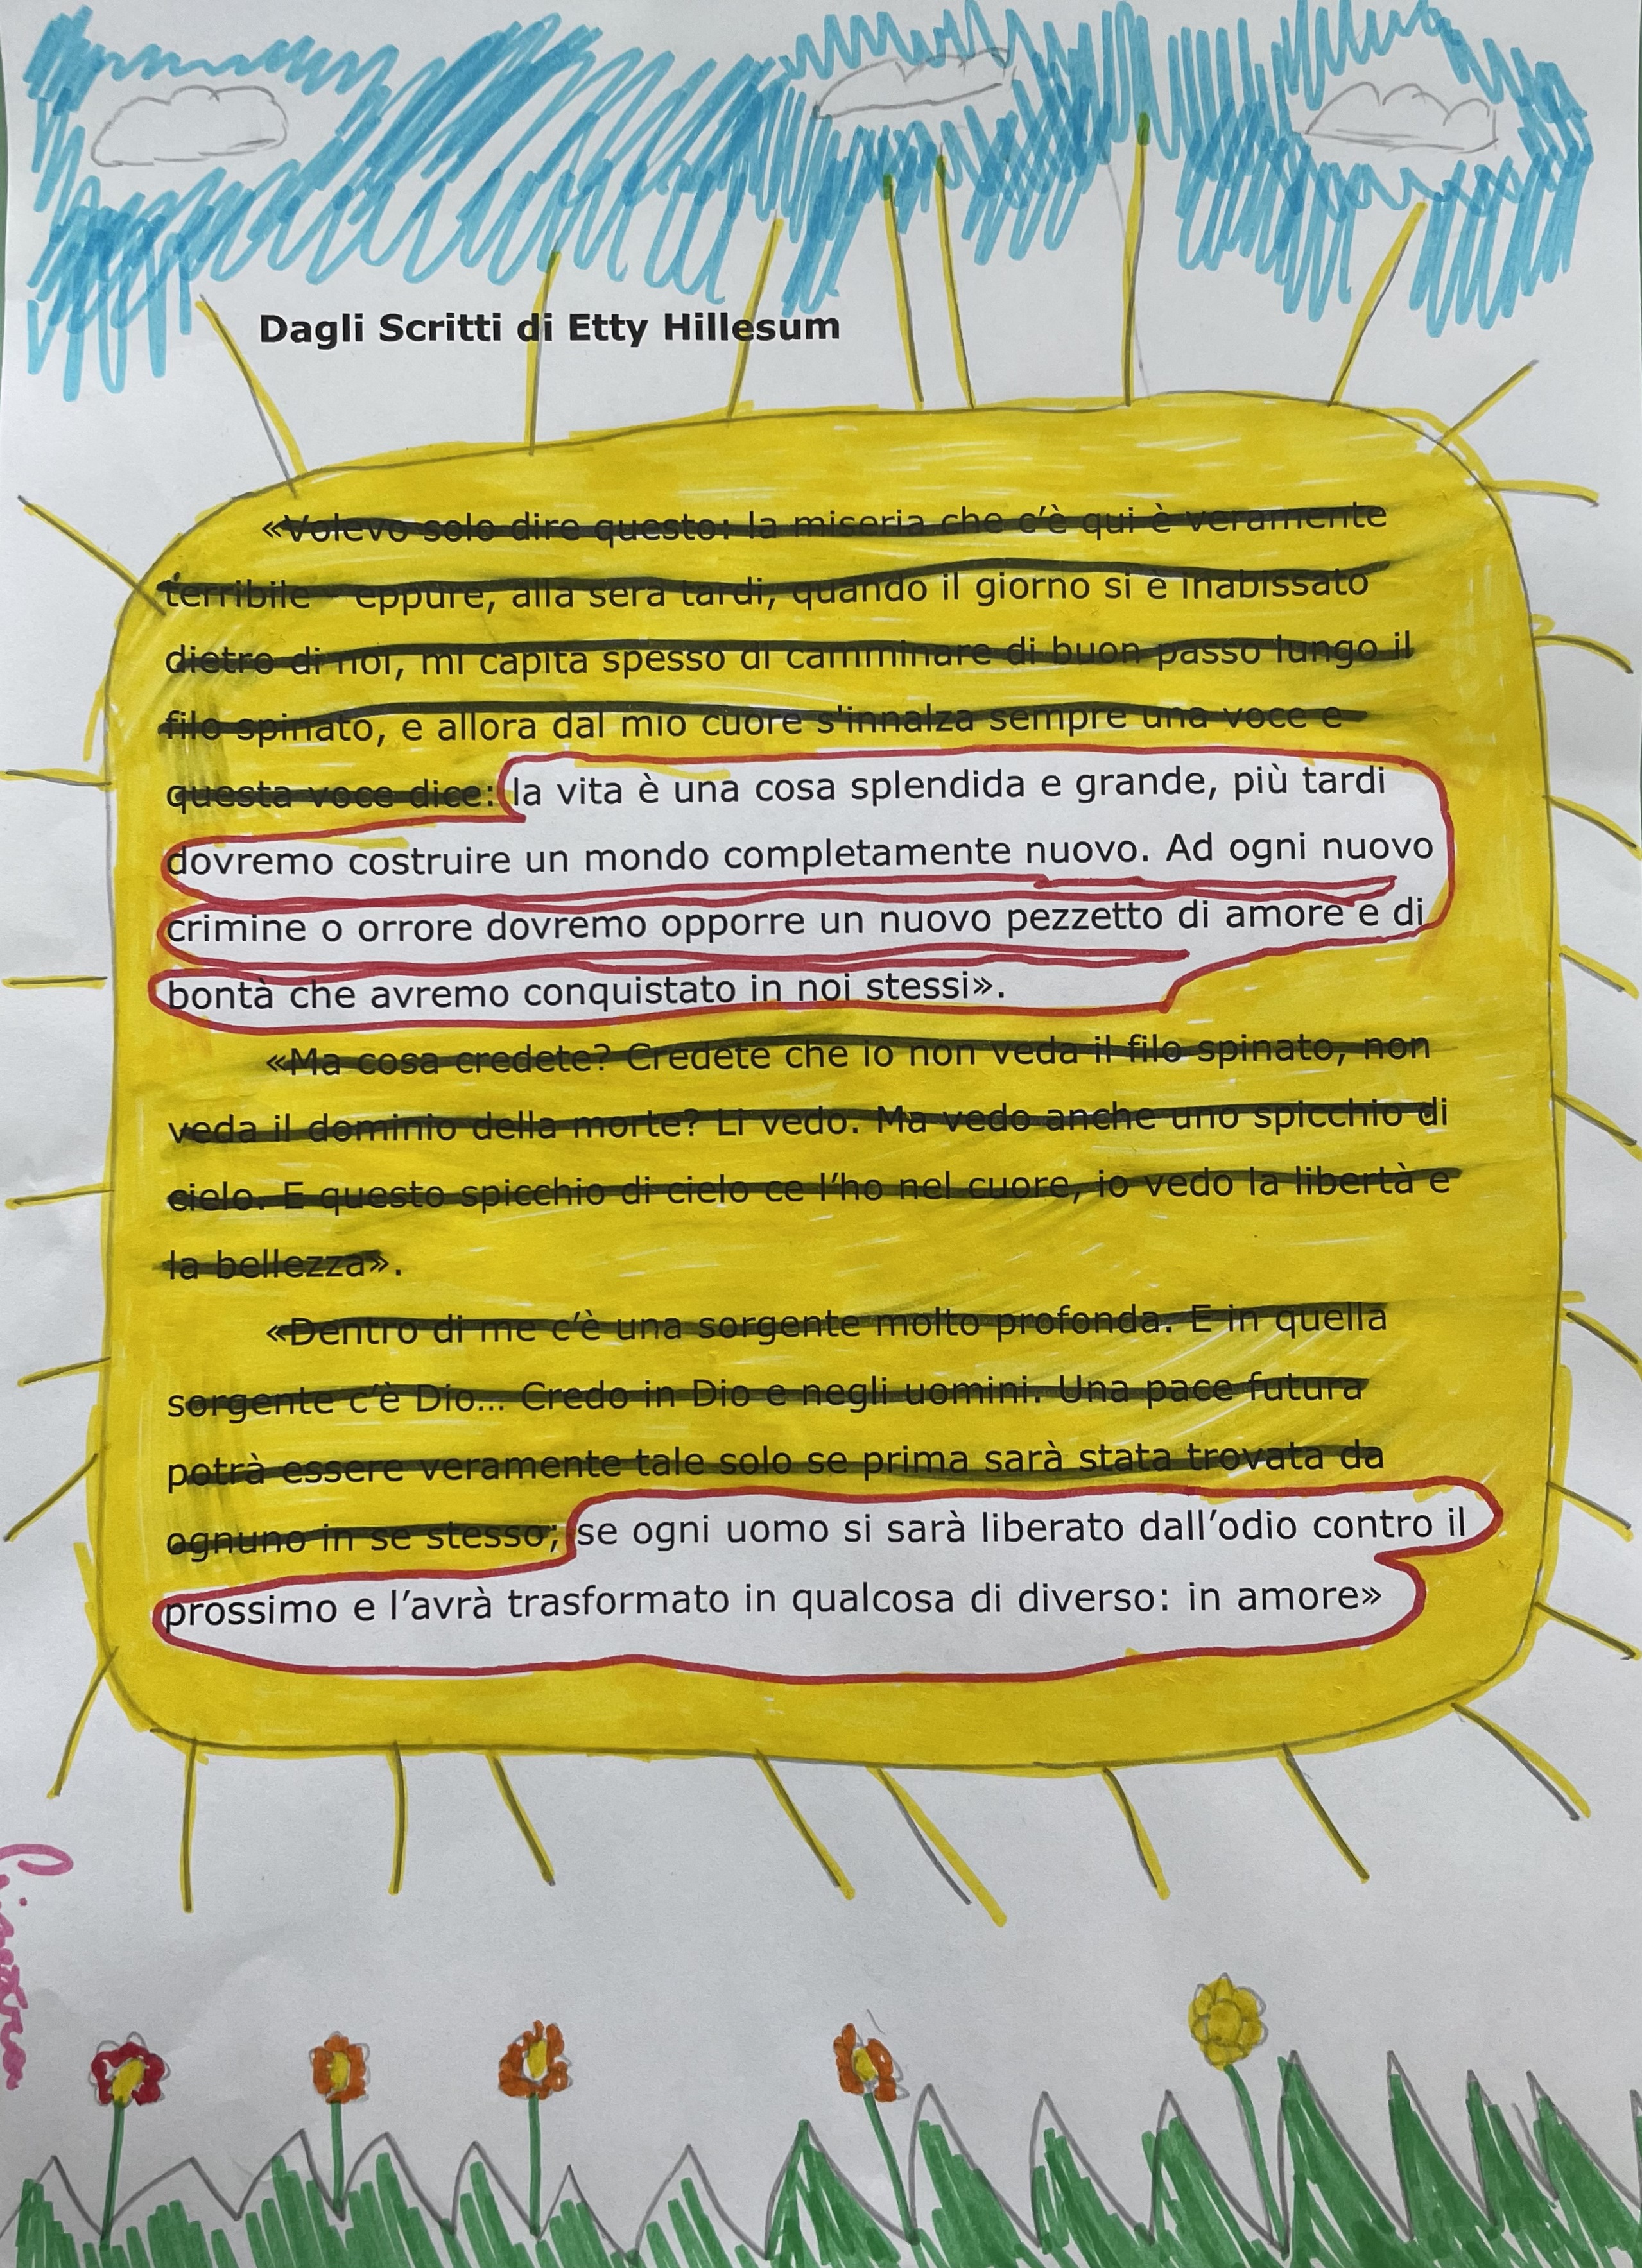 Dagli Scritti di Etty Hillesum
«Volevo solo dire questo: la miseria che c'è qui è veramente
terribile - eppure, alla sera tardi, quando il giorno si è inabissato
dietro di noi, mi capita spesso di camminare di buon passo lungo il
filo spinato, e allora dal mio cuore s'innalza sempre una voce e
questa voce dice: la vita è una cosa splendida e grande, più tardi
dovremo costruire un mondo completamente nuovo. Ad ogni nuovo
crimine o orrore dovremo opporre un nuovo pezzetto di amore e di
bontà che avremo conquistato in noi stessi».
«Ma cosa credete? Credete che io non veda il filo spinato, non
veda il dominio della morte? Li vedo. Ma vedo anche uno spicchio di
cielo. E questo spicchio di cielo ce l'ho nel cuore, io vedo la libertà e
la bellezza».
«Dentro di me c'è una sorgente molto profonda. E in quella
sorgente c'è Dio... Credo in Dio e negli uomini. Una pace futura
potrà essere veramente tale solo se prima sarà stata trovata da
ognuno in se stesso; se ogni uomo si sarà liberato dall'odio contro il
prossimo e l'avrà trasformato in qualcosa di diverso: in amore»